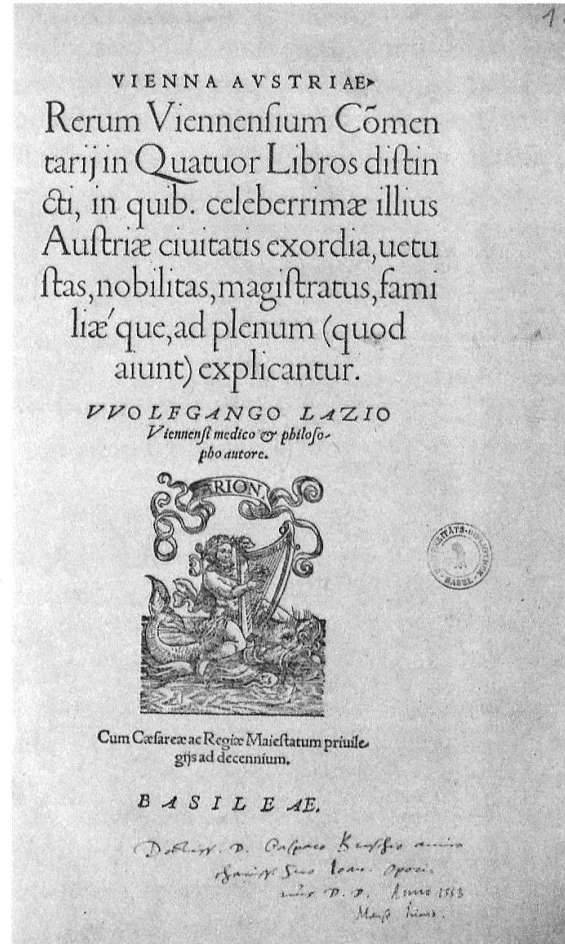 1
VIENNA AVSTRIAE
Rerum Viennenſium Cõmen
tarij in Quatuor Libros diſtin
cti, in quib. celeberrimæ illius
Auſtriæ ciuitatis exordia, uetu
ſtas, nobilitas, magiſtratus, fami
liæ´que, ad plenum (quod
aiunt) explicantur.
VVOLFGANGO LAZIO
Viennenſi medico & philoſo-
pho autore.
ARION.
BIBLIOTHEK
BASEL
Cum Cæſareæ ac Regiæ Maieſtatum priuile-
gijs ad decennium.
BASILEAE.
D. Caſparo Bruſchio amico
ſuo Ioan. Opori-
nus D. D. Anno 1553